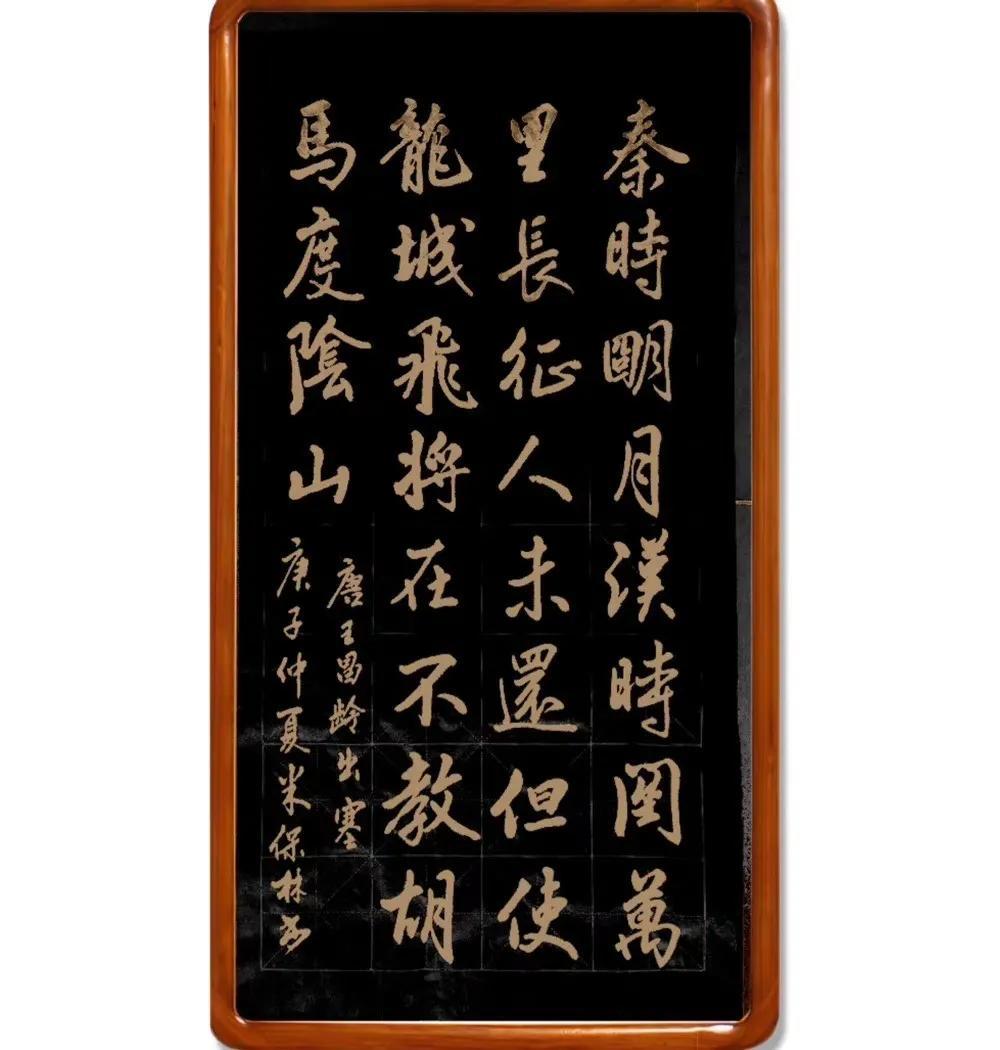 秦時朙月漢時関萬
里長征人未還但使
龍城飛將在不教胡
馬度陰山
唐王昌齡出塞
庚子仲夏米保林書